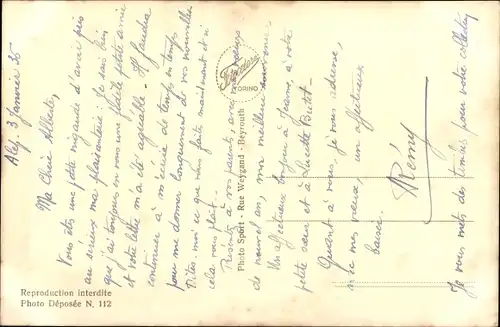 Alep, 3 Janvier 36
Ma Chère Alberte,
Vous êtes une petite nigaude d'avoir pris
au sérieux ma plaisanterie. Je sais bien
que j'ai toujours en vous une petite amie
et votre lettre m'a été agréable. Il faudra
continuer à m'écrire de temps en temps
pour me donner longuement de vos nouvelles
Dites-moi ce que vous faites maintenant et si
cela vous plaît.
Présentez à vos parents, avec mes vœux
de nouvel an, mon meilleur souvenir.
Un affectueux bonjour à Jeanne, à votre
petite sœur et à Lucette
Quant à vous, je vous adresse,
avec mes vœux, un affectueux
baiser.
Rémy
Je vous mets des timbres pour votre collection
Photo Sport - Rue Weygand - Beyrouth
TORINO
Reproduction interdite
Photo Déposée N. 112